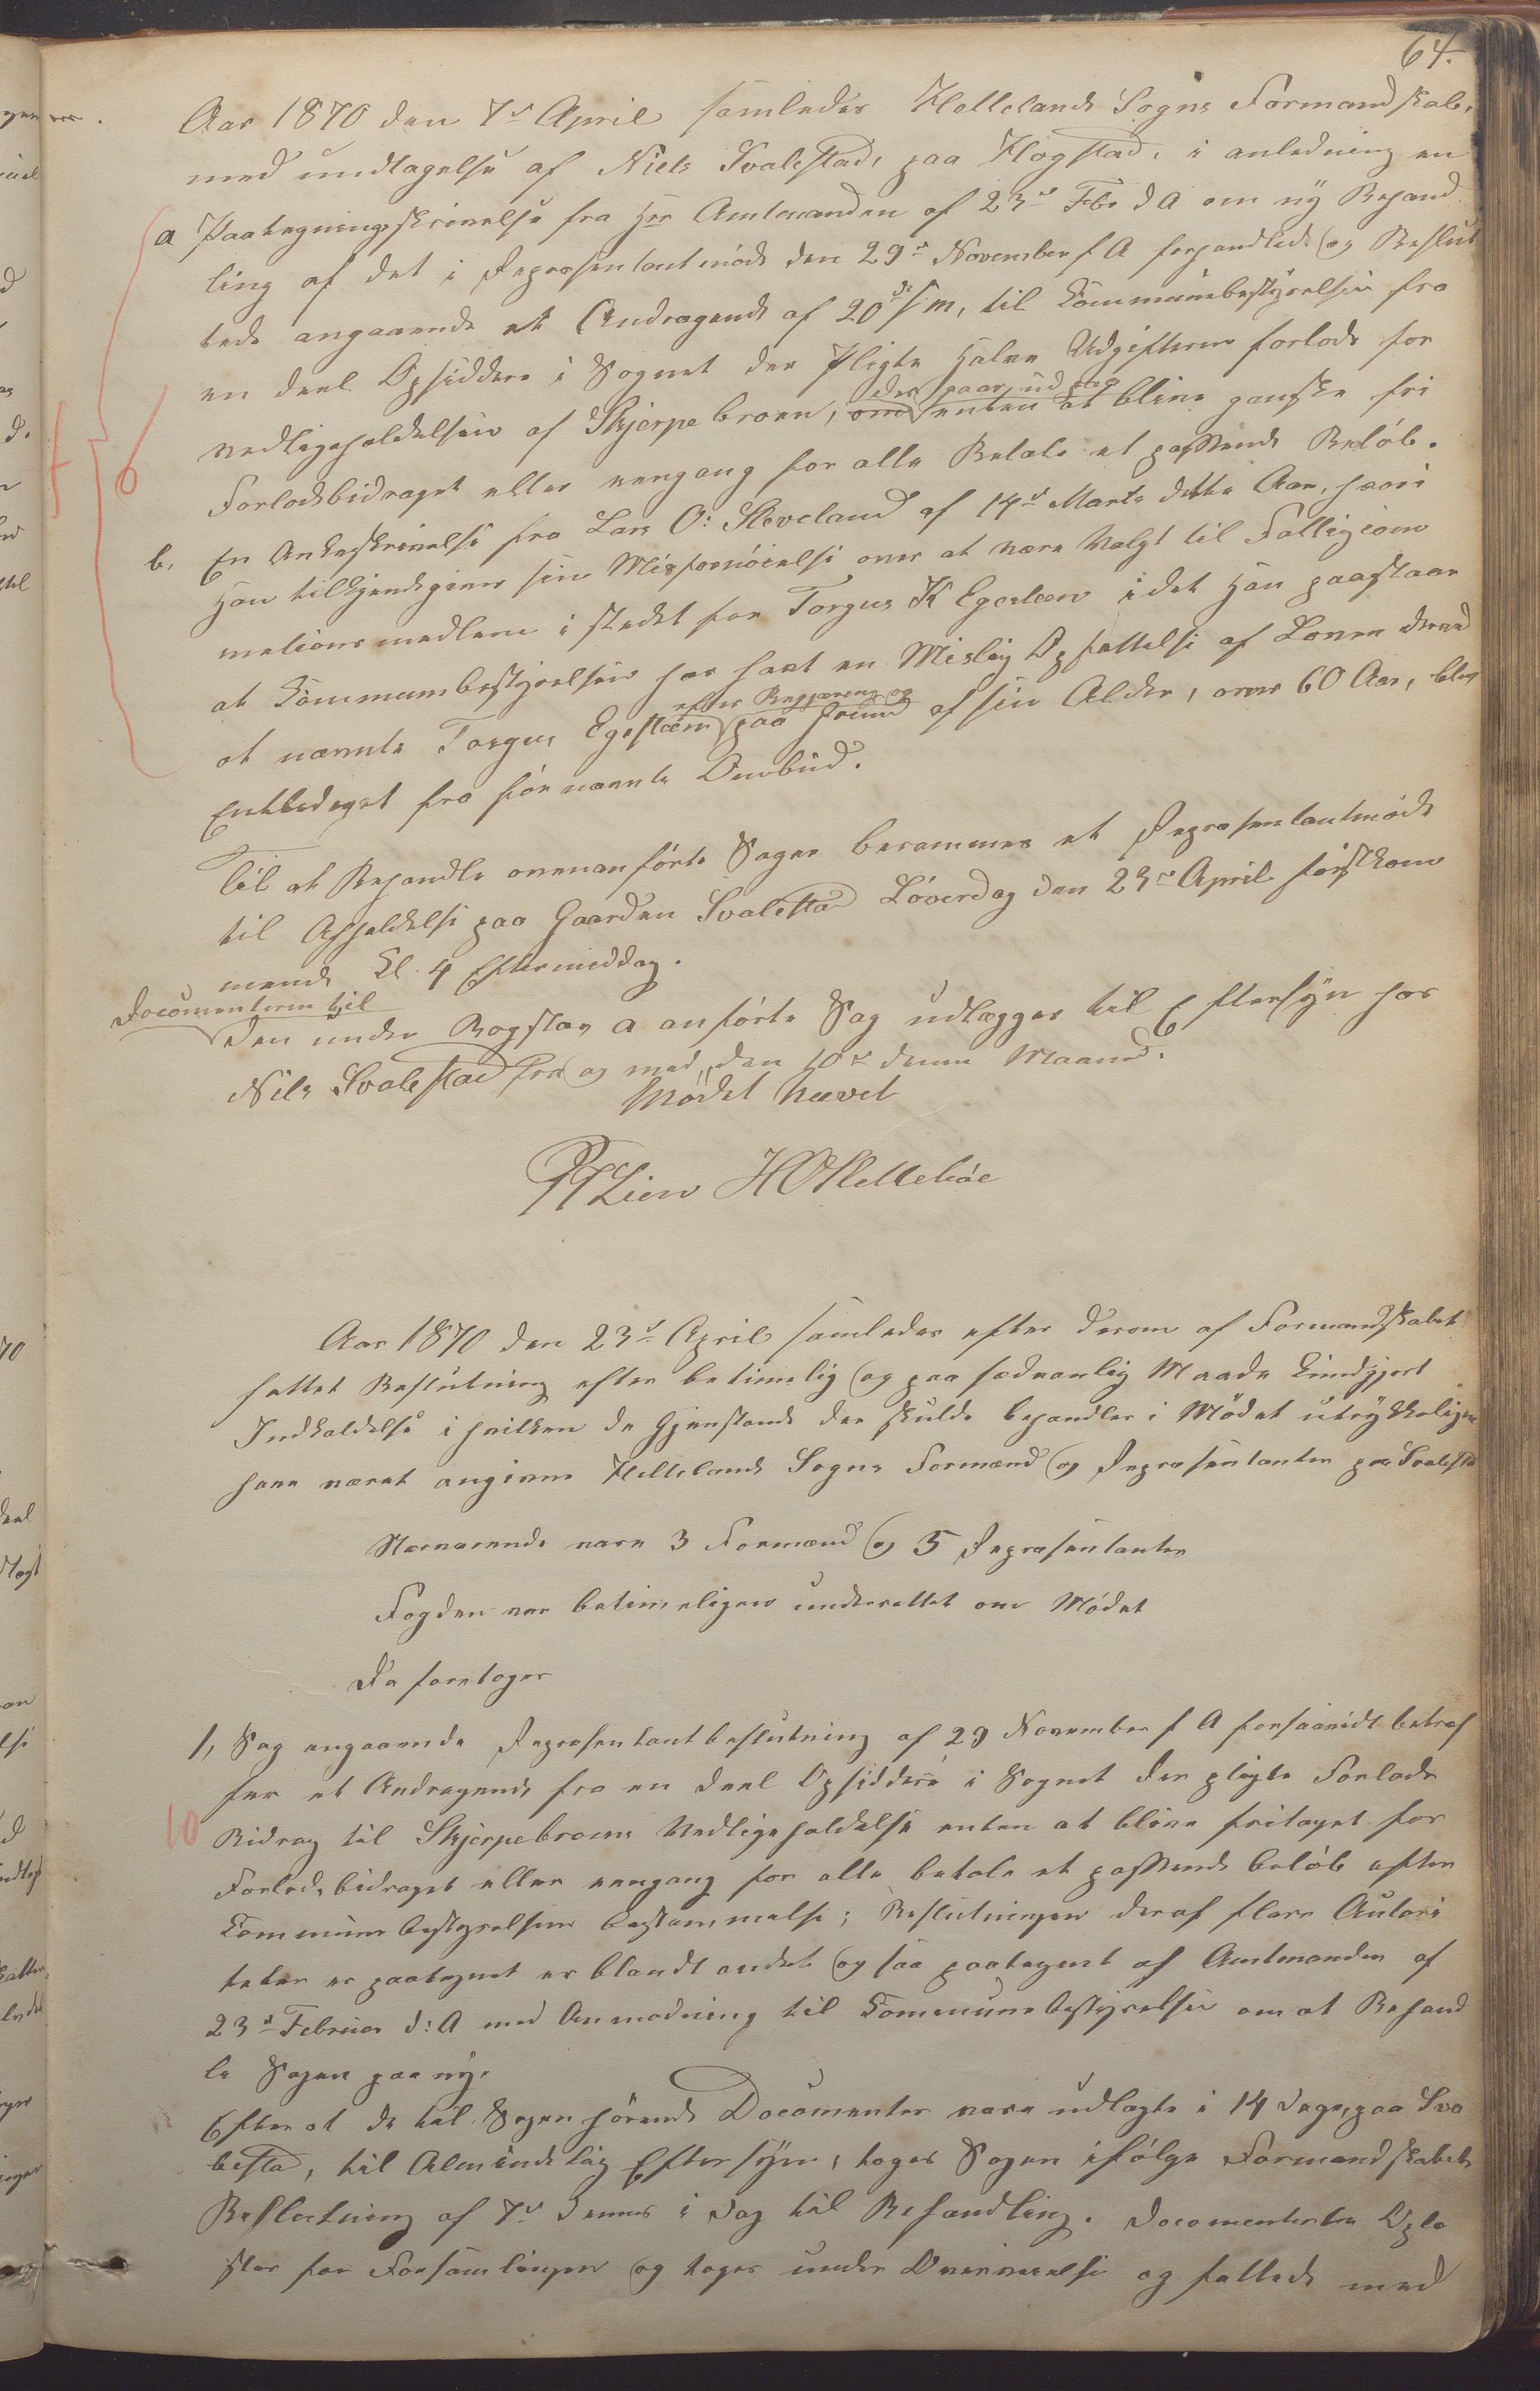 64.
Aar 1870 den 7de April samledes Hellelands Sogns Formandskab,
med undtagelse af Niels Svalestad, paa Hogstad, i anledning en
a Paategningsskrivelse fra Hrr Amtmanden af 23de Fbr d A om ny Behand
ling af det i Repræsentantmøde den 29de November f A forhandlede og Beslut
tede angaaende et Andragende af 20de s m, til Kommunebestyrelsen fra
en deel Opsiddere i Sognet der Pligte halve Udgifterne forlods for
der gaar ud paa
vedligeholdelsen af Skjerpebroen, om enten at blive ganske fri
Forlodsbidraget eller eengang for alle Betale et passende Beløb.
b, En Ankeskrivelse fra Lars O: Sleveland af 14de Marts dette Aar, hvori
Han tilkjendegiver sin Misfornøielse over at være Valgt til Fattigcom
missionsmedlem i stedet for Torgus K Egeslæn idet Han paastaar
at Kommunebestyrelsen har havt en Mislig Opfattelse af Loven derved
efter Begjæring og
at nævnte Torgus Egeslæn paa Grund af sin Alder, over 60 Aar, blev
Entlediget fra før nævnte Ombud.
Til at Behandle ovenanførte Sager berammes et Repræsentantmøde
til Afholdelse paa Gaarden Svalestad Løverdag den 23de April førstkom
mende Kl. 4 Eftermiddag.
Documenterne til
den under Bogstav a anførte Sag udlægges til Eftersyn hos
Nils Svalestad fra og med den 10de denne Maaned.
Mødet hævet
Lien H O Skellebøe
Aar 1870 den 23de April samledes efter derom af Formandskabet
fattet Beslutning efter betimelig og paa sædvanlig Maade kundgjort
Indkaldelse i hvilken de Gjenstande der skulde behandles i Mødet utrykkeligen
have været angivne Hellelands Sogns Formænd og Repræsentanter paa Svalesta
Nærværende vare 3 Formænd og 5 Repræsentanter
Fogden var betimeligen underrettet om Mødet
Da foretoges
1, Sag angaaende Repræsentantbeslutning af 29 November f A forsaavidt betræf
fer et Andragende fra en deel Opsiddere i Sognet der pligte Forlods
10 Bidrag til Skjerpebroens Vedligeholdelse enten at blive fritaget for
Forlodsbidraget eller eengang for alle betale et passende beløb efter
Kommunebestyrelsens bestemmelse; Beslutningen deraf flere Autori
teter er paategnet er blandt andet og saa paategnet af Amtmanden af
23de Februar d: A med Anmodning til Kommunebestyrelsen om at Behand
le Sagen paa ny.
Efter at de til Sagen hørende Documenter vare udlagte i 14 Dage, paa Sva
lesta, til Almindelig Eftersyn, toges Sagen ifølge Formandskabets
Beslutning af 7de dennes i Dag til Behandling. Documenterne Oplæ
stes for Forsamlingen og toges under Overveielse og fattede med